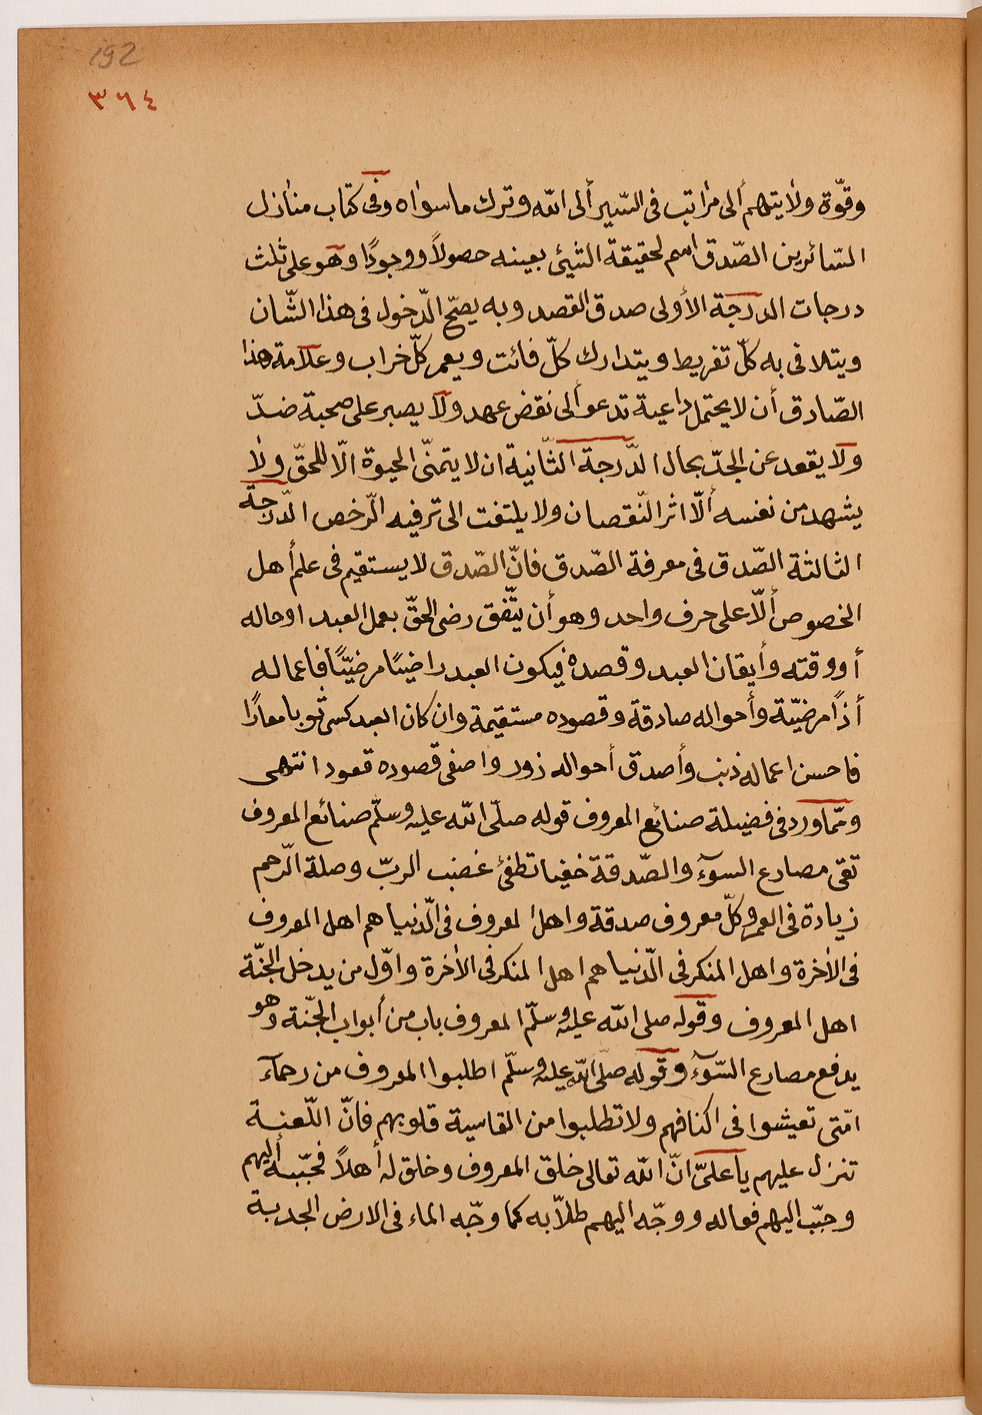 192
٣٦٤
وقوّة ولأيتهم ألى مراتب فى السّير ألى الله وترك ماسواه وفى كتاب منازل
السّائرين الصّدق اسم لحقيقة الشّيئى بعينه حصولاً ووجودًا وهو على ثلث
درجات الدرجة الأولى صدق القصد وبه يصحّ الدّخول فى هذا الشّان
ويتلافى به كلّ تفريط ويتدارك كلّ فائت ويعمر كلّ خراب وعلامة هذا
الصّادق أن لا يحتمل داعية تدعو ألى نقض عهد ولا يصبر على صحبة ضدّ
ولا يقعد عن الجدّ بحال الدّرجة الثّانية ان لا يتمنّى الحيوة الّا للحقّ ولا
يشهد من نفسه ألّا اثر النّقصان ولا يلتفت الى ترفيه الرّخص الدّرجة
الثالثة الصّدق فى معرفة الصّدق فانّ الصّدق لا يستقيم فى علم أهل
الخصوص ألّا على حرف واحد وهو أن يتّفق رضى الحقّ بعمل العبد او حاله
أو وقته وأيقان العبد وقصده فيكون العبد راضيًا مرضيّتًا فاعماله
أذًا مرضيّة وأحواله صادقة وقصوده مستقيمة وان كان العبد كسى ثوبا معارًا
فاحسن اعماله ذنب وأصدق أحواله زور واصفى قصوده قعود انتهى
وممّا ورد فى فضيلة صنائع المعروف قوله صلّى الله عليه وسلّم صنائع المعروف
تقى مصارع السوٓء والصّدقة خفيا تطفئ غضب الربّ وصلة الرّحم
زيادة فى العمر وكلّ معروف صدقة واهل المعروف فى الدّنيا هم اهل المعروف
فى الأخرة واهل المنكر فى الدّنيا هم اهل المنكر فى الأخرة واوّل من يدخل الجنّة
اهل المعروف وقوله صلى الله عليه وسلّم المعروف باب من أبواب الجنّة وهو
يدفع مصارع السّوٓء وقوله صلّى الله عليه وسلّم اطلبوا المعروف من رحمآء
امّتى تعيشوا فى اكنافهم ولا تطلبوا من القاسية قلوبهم فانّ اللّعنة
تنزل عليهم يا علىّ انّ الله تعالى خلق المعروف وخلق له أهلاً فحبّبه أليهم
وحبّب اليهم فعاله ووجّه اليهم طلاّبه كما وجّه الماء فى الارض الجدبة